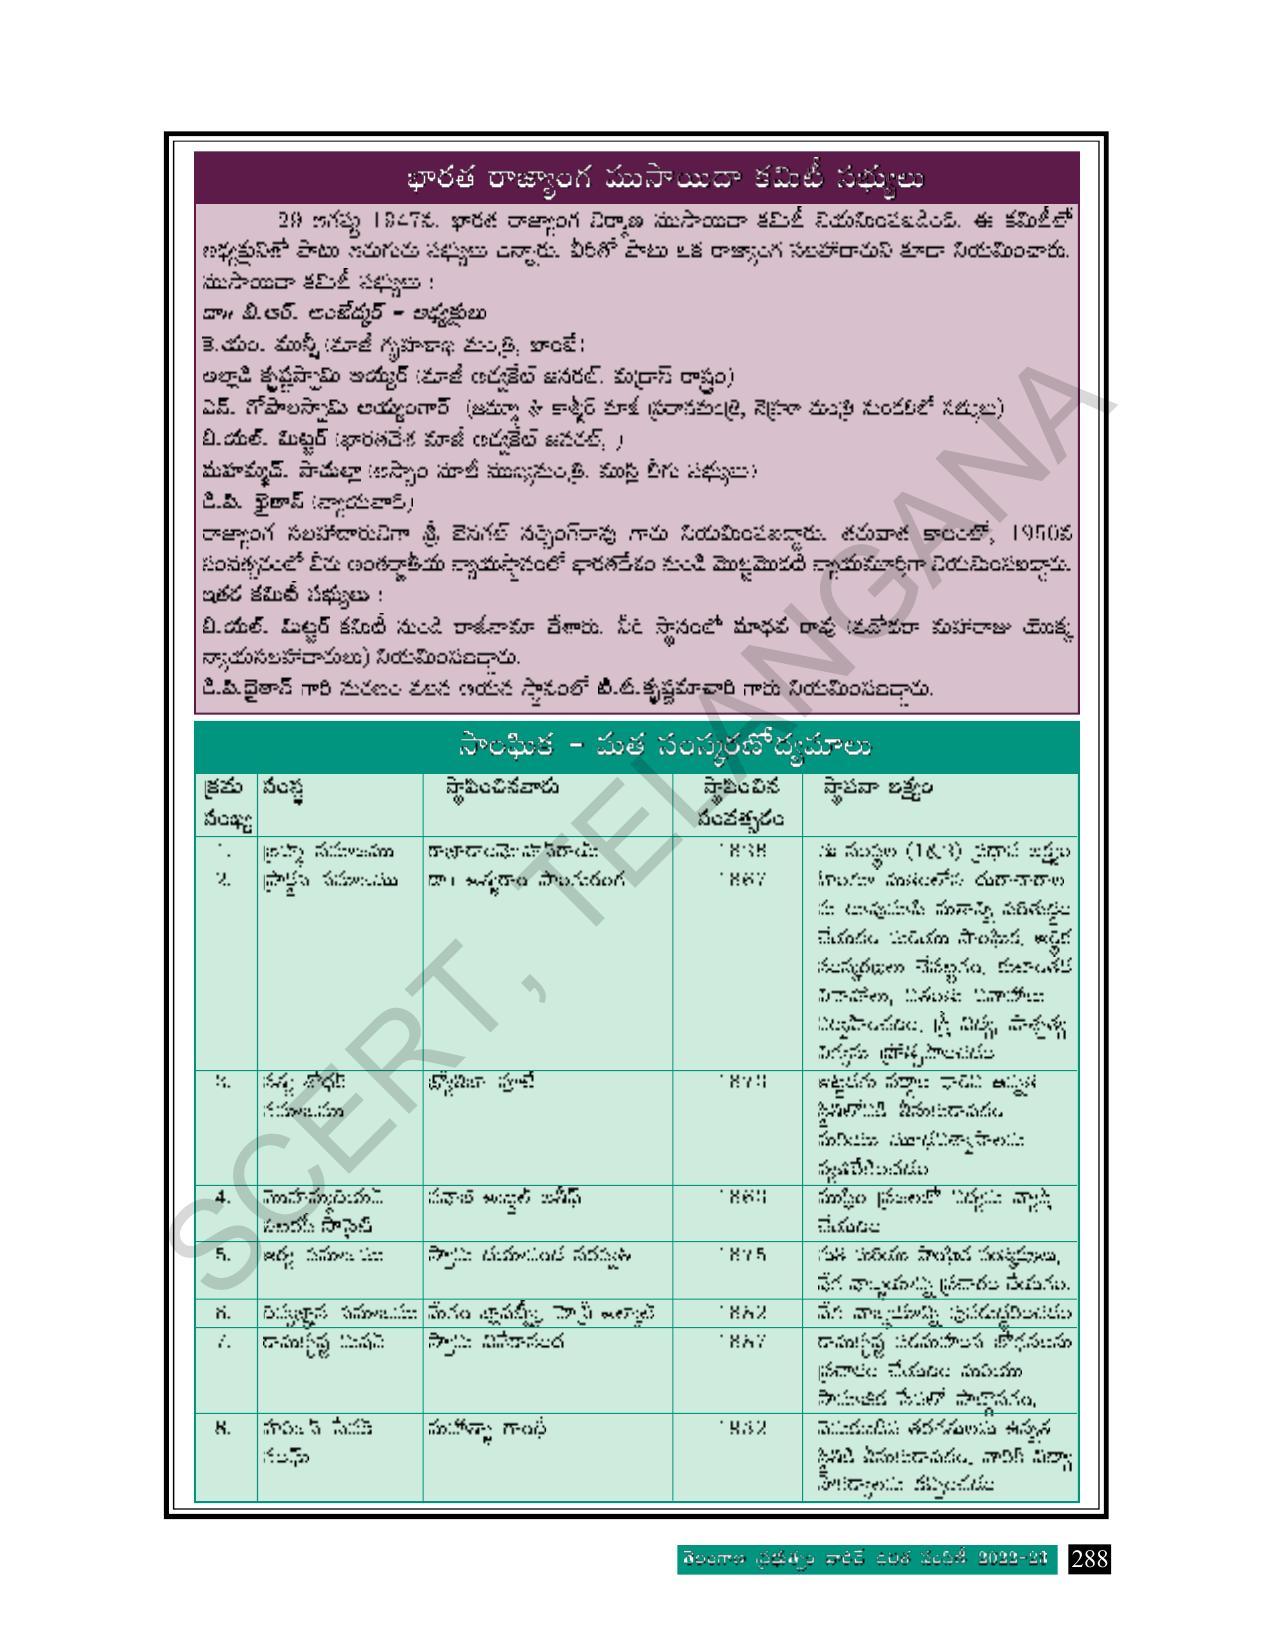 భారత రాజ్యాంగ ముసాయిదా కమిటీ సభ్యులు
29 ఆగస్టు 1947న. భారత రాజ్యాంగ నిర్మాణ ముసాయిదా కమిటీ నియమించబడింది. ఈ కమిటీలో
అధ్యక్షునితో పాటు ఆరుగురు సభ్యులు ఉన్నారు. వీరితో పాటు ఒక రాజ్యాంగ సలహాదారుని కూడా నియమించారు.
ముసాయిదా కమిటీ సభ్యులు :
డా॥ బి.ఆర్. అంబేద్కర్ - అధ్యక్షులు
కె.యం. మున్షీ (మాజీ గృహశాఖ మంత్రి, బాంబే)
అల్లాడి కృష్ణస్వామి అయ్యర్ (మాజీ అడ్వకేట్ జనరల్. మద్రాస్ రాష్ట్రం)
ఎన్. గోపాలస్వామి అయ్యంగార్ (జమ్మూ & కాశ్మీర్ మాజీ ప్రధానమంత్రి, నెహ్రూ మంత్రి మండలిలో సభ్యులు)
బి.యల్. మిట్టర్ (భారతదేశ మాజీ అడ్వకేట్ జనరల్, )
మహమ్మద్. సాదుల్లా (అస్సాం మాజీ ముఖ్యమంత్రి. ముస్లి లీగు సభ్యులు)
డి.పి. ఖైతాన్ (న్యాయవాది)
రాజ్యాంగ సలహాదారునిగా శ్రీ బెనగల్ నర్సింగ్‌రావు గారు నియమించబడ్డారు. తరువాత కాలంలో, 1950వ
సంవత్సరంలో వీరు అంతర్జాతీయ న్యాయస్థానంలో భారతదేశం నుండి మొట్టమొదటి న్యాయమూర్తిగా నియమించబడ్డారు.
ఇతర కమిటీ సభ్యులు :
బి.యల్. మిట్టర్ కమిటీ నుండి రాజీనామా చేశారు. వీరి స్థానంలో మాధవ రావు (వడోదరా మహారాజు యొక్క
న్యాయసలహాదారులు) నియమించబడ్డారు.
డి.పి.ఖైతాన్ గారి మరణం వలన ఆయన స్థానంలో టి.టి.కృష్ణమాచారి గారు నియమించబడ్డారు.
సాంఘిక - మత సంస్కరణోద్యమాలు
క్రమ సంఖ్య సంస్థ స్థాపించినవారు స్థాపించిన సంవత్సరం స్థాపనా లక్ష్యం
1. బ్రహ్మ సమాజము రాజారాంమోహన్‌రాయ్ 1828 ఈ సంస్థల (1&3) ప్రధాన లక్ష్యం
2. ప్రార్థన సమాజము డా। ఆత్మరాం పాండురంగ 1867 హిందూ మతంలోని దురాచారాల
ను రూపుమాపి మతాన్ని పరిశుద్ధం
చేయడం మరియు సాంఘిక, ఆర్థిక
సంస్కరణలు చేపట్టడం, కులాంతర
వివాహాలు, వితంతు వివాహాలు
నిర్వహించడం, స్త్రీ విద్య, పాశ్చాత్య
విద్యను ప్రోత్సహించడం
3. సత్య శోధక్ సమాజము జ్యోతిబా పూలే 1873 అట్టడుగు వర్గాల వారిని ఉన్నత
స్థితిలోనికి తీసుకురావడం
మరియు మూఢవిశ్వాసాలను
వ్యతిరేకించడము
4. మొహమ్మదియన్ లిటరరీ సొసైటీ నవాబ్ అబ్దుల్ లతీఫ్ 1863 ముస్లిం ప్రజలలో విద్యను వ్యాప్తి
చేయడం
5. ఆర్య సమాజము స్వామి దయానంద సరస్వతి 1875 మత మరియు సాంఘిక సంస్కరణలు,
వేద వాఙ్మయాన్ని ప్రచారం చేయడం.
6. దివ్యజ్ఞాన సమాజము మేడం బ్లావట్స్కీ, హెన్రీ ఆల్కాట్ 1882 వేద వాఙ్మయాన్ని పునరుద్ధరించడము
7. రామకృష్ణ మిషన్ స్వామి వివేకానంద 1887 రామకృష్ణ పరమహంస బోధనలను
ప్రచారం చేయడం మరియు
సామాజిక సేవలో పాల్గొనడం,
8. హరిజన్ సేవక్ సంఘ్ మహాత్మా గాంధీ 1932 వెనుకబడిన తరగతులను ఉన్నత
స్థితికి తీసుకురావడం, వారికి విద్యా
సౌకర్యాలను కల్పించడము
SCERT, TELANGANA
తెలంగాణ ప్రభుత్వం వారిచే ఉచిత పంపిణీ 2022-23 288